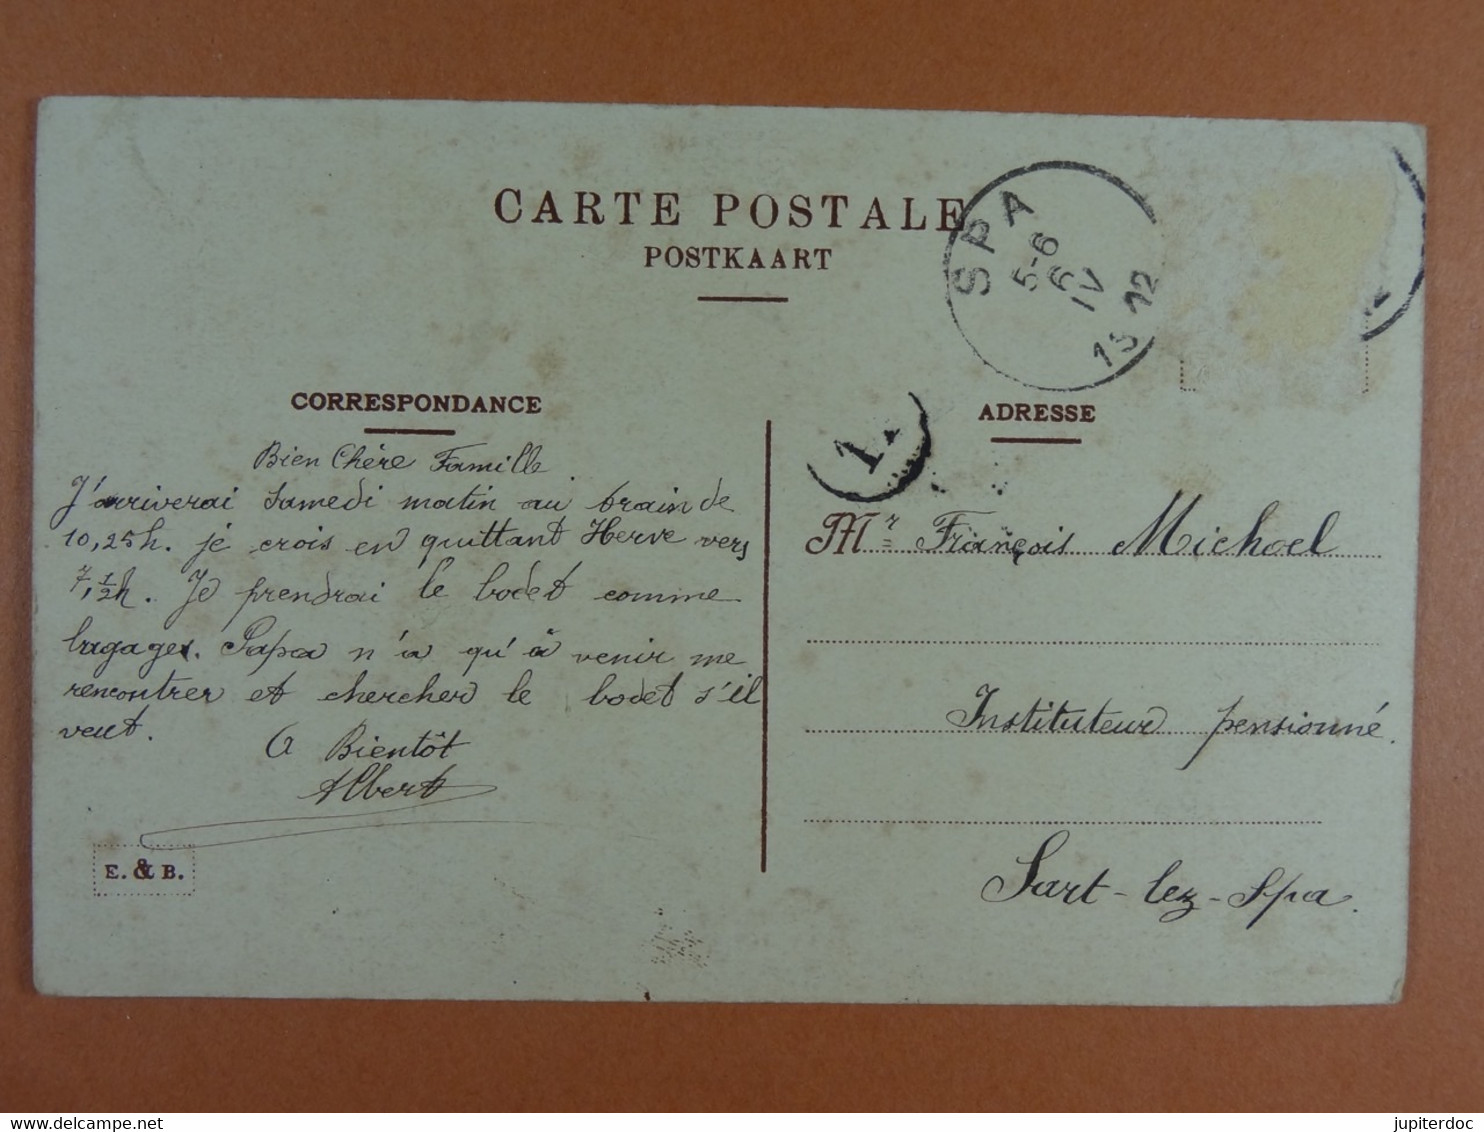 CARTE POSTALE
POSTKAART
SPA
5-6
6
IV
12
CORRESPONDANCE
Bien Chère Famille
J'arriverai Samedi matin au train de
10,25h. je crois en quittant Herve vers
7,½h. Je prendrai le bodet comme
bagages. Papa n'a qu'à venir me
rencontrer et chercher le bodet s'il
veut.
A Bientôt
Albert
E. & B.
ADRESSE
Mr François Michoel
Instituteur pensionné.
Sart-lez-Spa.
jupiterdoc